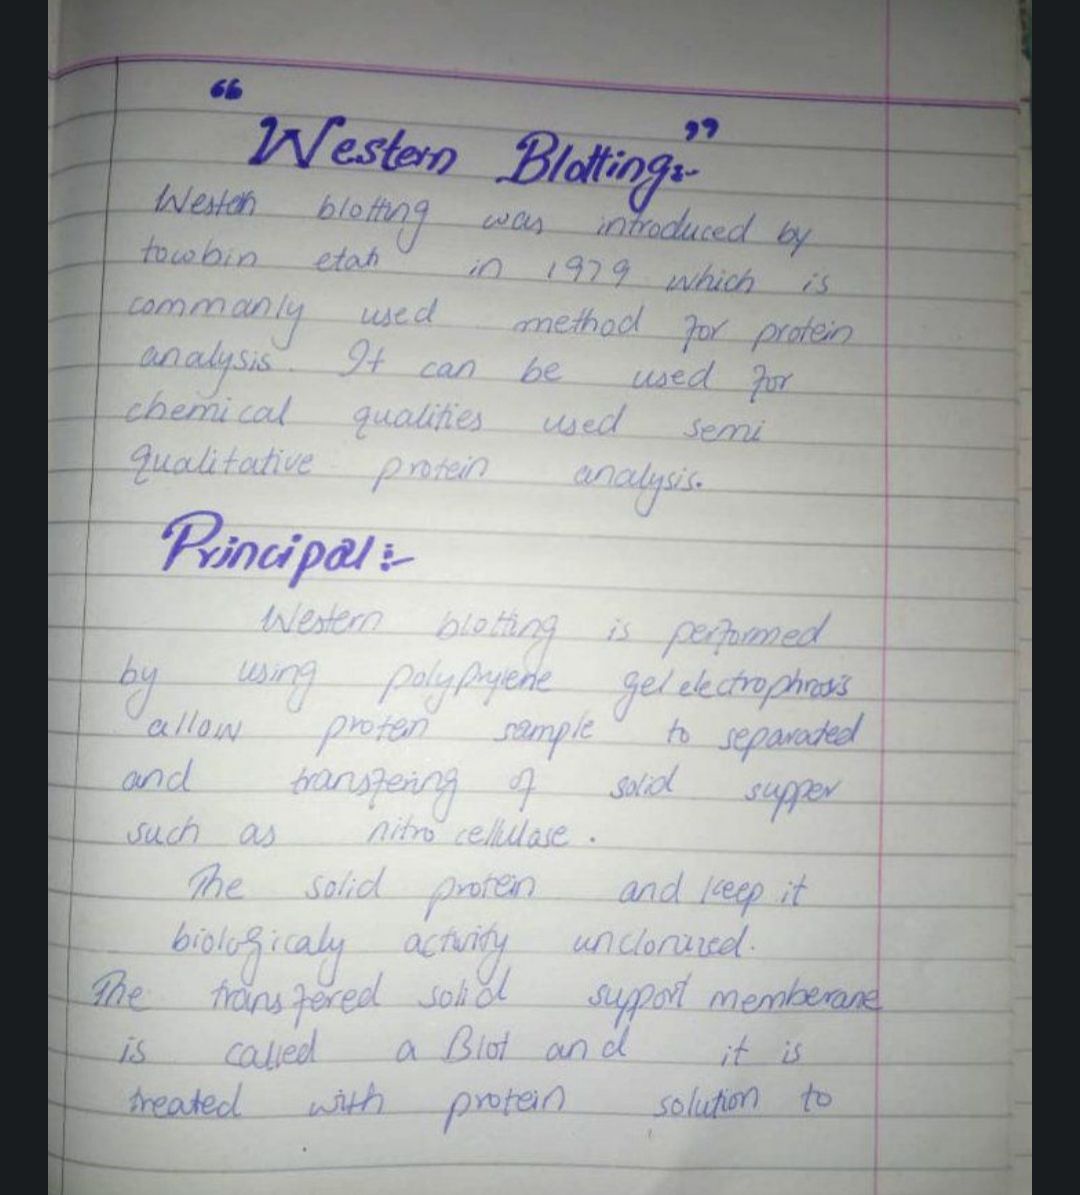 "Western Blotting:-"
Western blotting was introduced by
towbin etah in 1979 which is
commanly used method for protein
analysis. It can be used for
chemical qualities used semi
qualitative protein analysis.
Principal:-
Western blotting is performed
by using gel electrophrosis
allow protein sample to separated
and transfering of solid supper
such as nitro cellulase.
The solid protein and keep it
biologicaly activity
The transfered solid support memberane
is called a Blot and it is
treated with protein solution to